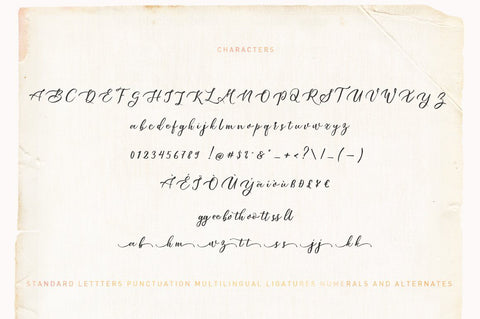 CHARACTERS
A B C D E F G H I J K L M N O P Q R S T U V W X Y Z
a b c d e f g h i j k l m n o p q r s t u v w x y z
0 1 2 3 4 5 6 7 8 9 ! @ # $ % ^ & * _ + < ? \ / _ ( – )
gg ee bo th oo tt ss ll
ab hm wz tt ss jj kk
STANDARD LETTTERS PUNCTUATION MULTILINGUAL LIGATURES NUMERALS AND ALTERNATES